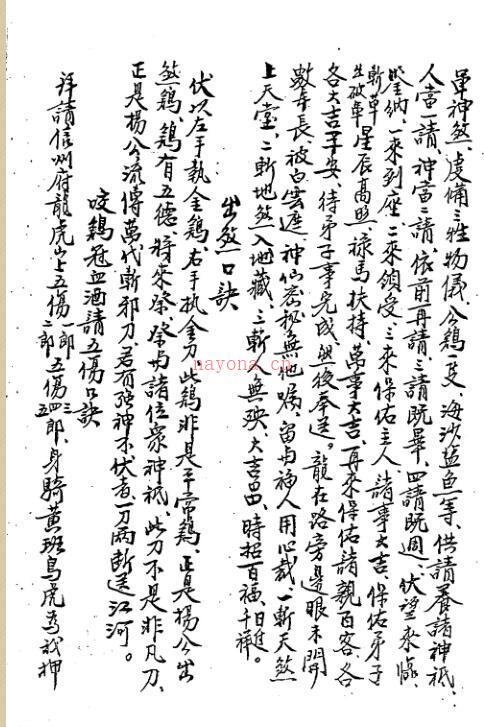 軍神煞、虔備三牲物儀、今鷄一隻、海沙塩魚等、供請養諸神祇、
人當一請、神當二請、依前再請、三請既畢、四請既週、伏望來臨、
鑒納、一來到座、二來領受、三來保佑主人、諸事大吉、保佑弟子
斬草破車、星辰高照、祿馬扶持、萬事大吉、再來保佑諸親百客、各
各大吉平安、待弟子事完成、與後奉送。龍在路旁邊眼未開
數年長、被白雲遮、神仙密秘無他囑、留与福人用心裁、一斬天煞
上天堂、二斬地煞入地藏、三斬人無殃、大吉昌、時招百福、日進千祥。
出煞口訣
伏以左手執金鷄、右手执金刀、此鷄非是平常鷄、正是楊公出
煞鷄、鷄有五德、將來祭、祭与諸位衆神祇、此刀不是非凡刀、
正是楊公流傳萬代斬邪刀、若有強神不伏者、一刀兩断送江河。
咬鷄冠血酒請五傷口訣
拜請信州府龍虎山上五傷一郎二郎、五傷三四郎、身騎黄班烏虎為我押
nayona.cn